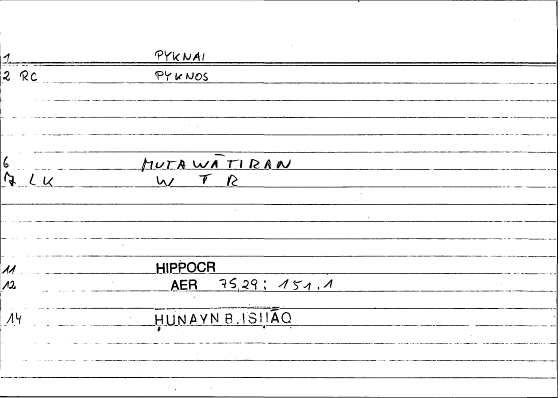 1 PYKNAI
2 RC PYKNOS
6 MUTAWĀTIRAN
7 LK W T R
11 HIPPOCR
12 AER 75,29: 151.1
14 ḤUNAYN B. ISḤĀQ